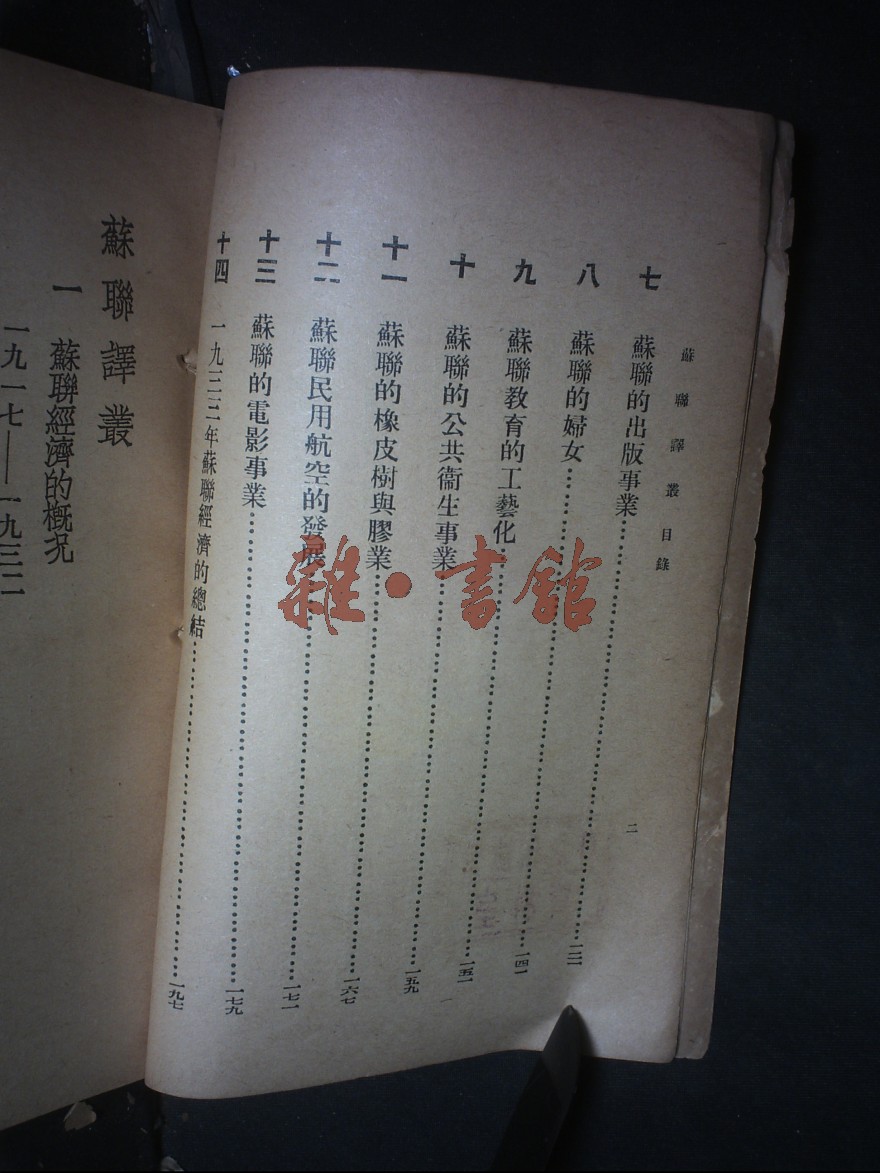 蘇聯譯叢 目錄
二
七 蘇聯的出版事業……一二一
八 蘇聯的婦女……一四一
九 蘇聯教育的工藝化……一五一
十 蘇聯的公共衞生事業……一五九
十一 蘇聯的橡皮樹與膠業……一六七
十二 蘇聯民用航空的發展……一七一
十三 蘇聯的電影事業……一七九
十四 一九三二年蘇聯經濟的總結……一九七
蘇聯譯叢
一 蘇聯經濟的概況
一九一七——一九三二
雜·書館